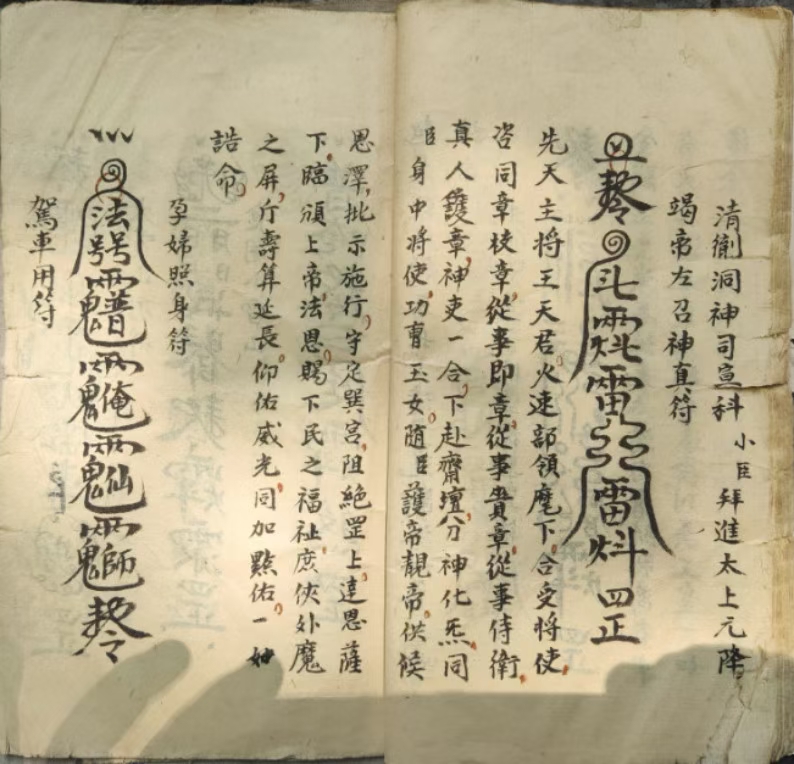 清衛洞神司宣科 小臣 拜進太上元降
竭帝左召神真符
斗
雷
雷
四正
先天主將王天君火速部領麾下合受將使
咨同章校章從事即章從事貴章從事侍衛
真人護章神吏一合下赴齋壇分神化炁同
臣身中將使功曹玉女隨臣護帝覲帝供候
恩澤批示施行守定巽宮阻絕罡上達恩薩
下臨頒上帝法恩賜下民之福祉庶俠外魔
之屏斤壽算延長仰佑威光同加點佑一如
誥命
孕婦照身符
法號
駕車用符